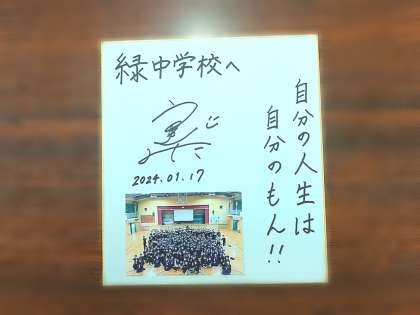 緑中学校へ
自分の人生は
自分のもん!!
2024.01.17